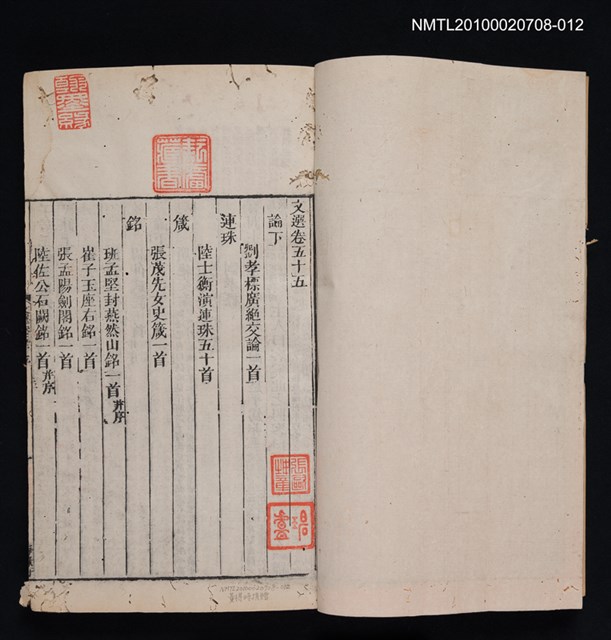 NMTL20100020708-012
文選卷五十五
論下
劉孝標廣絕交論一首
連珠
陸士衡演連珠五十首
箴
張茂先女史箴一首
銘
班孟堅封燕然山銘一首并序
崔子玉座右銘一首
張孟陽劍閣銘一首
陸佐公石闕銘一首并序